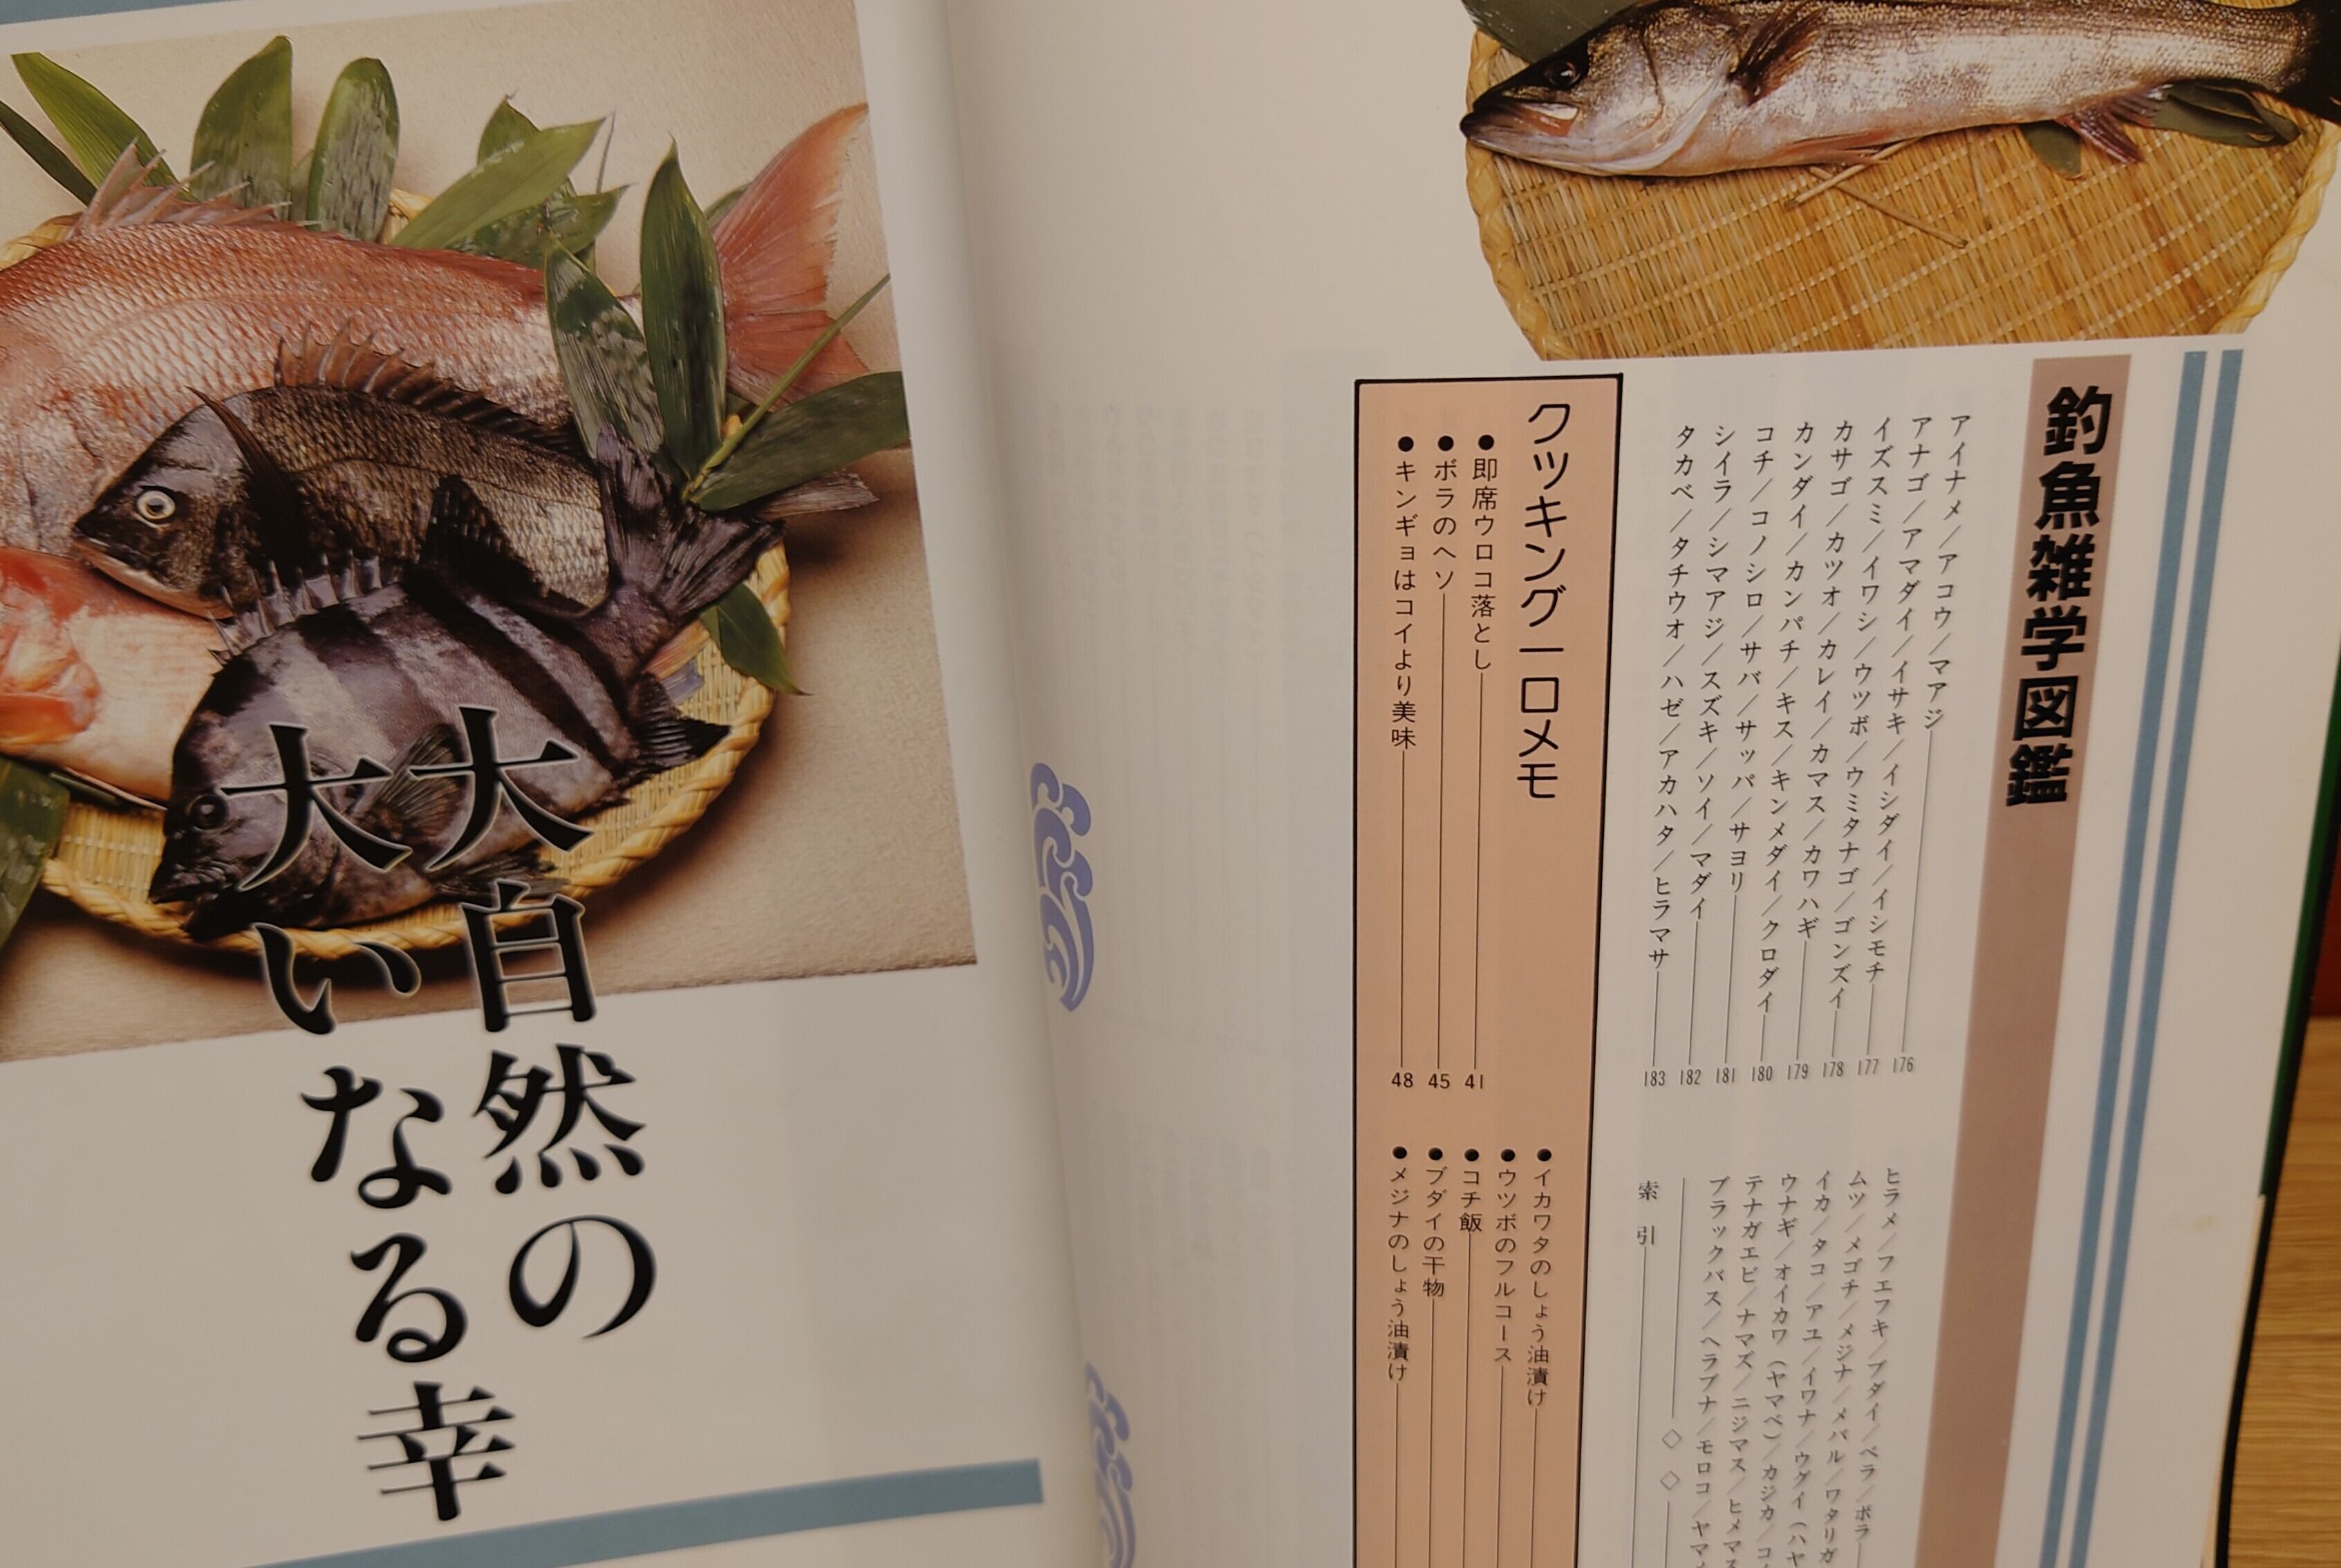 釣魚雑学図鑑
アイナメ／アコウ／マアジ 176
アナゴ／アマダイ／イサキ／イシダイ／イシモチ 177
イズスミ／イワシ／ウツボ／ウミタナゴ／ゴンズイ 178
カサゴ／カツオ／カレイ／カマス／カワハギ 179
カンダイ／カンパチ／キス／キンメダイ／クロダイ 180
コチ／コノシロ／サバ／サッパ／サヨリ 181
シイラ／シマアジ／スズキ／ソイ／マダイ 182
タカベ／タチウオ／ハゼ／アカハタ／ヒラマサ 183
ヒラメ／フエフキ／ブダイ／ベラ／ボラ
ムツ／メゴチ／メジナ／メバル／ワタリガ
イカ／タコ／アユ／イワナ／ウグイ（ハヤ
ウナギ／オイカワ（ヤマベ）／カジカ／コイ
テナガエビ／ナマズ／ニジマス／ヒメマス
ブラックバス／ヘラブナ／モロコ／ヤマメ
◇ ◇
索引
クッキング一口メモ
●即席ウロコ落とし 41
●ボラのヘソ 45
●キンギョはコイより美味 48
●イカワタのしょう油漬け
●ウツボのフルコース
●コチ飯
●ブダイの干物
●メジナのしょう油漬け
大自然の
大いなる幸